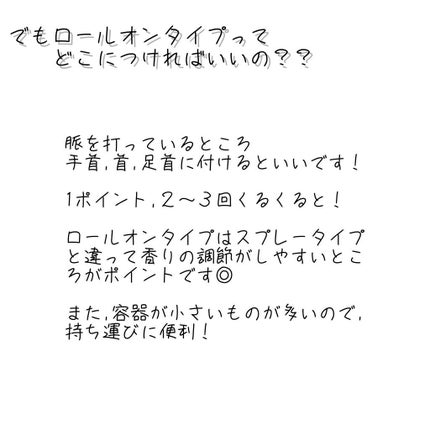 でもロールオンタイプって
どこにつければいいの？？
脈を打っているところ
手首,首,足首に付けるといいです！
1ポイント,2〜3回くるくると！
ロールオンタイプはスプレータイプ
と違って香りの調節がしやすいとこ
ろがポイントです◎
また,容器が小さいものが多いので,
持ち運びに便利！